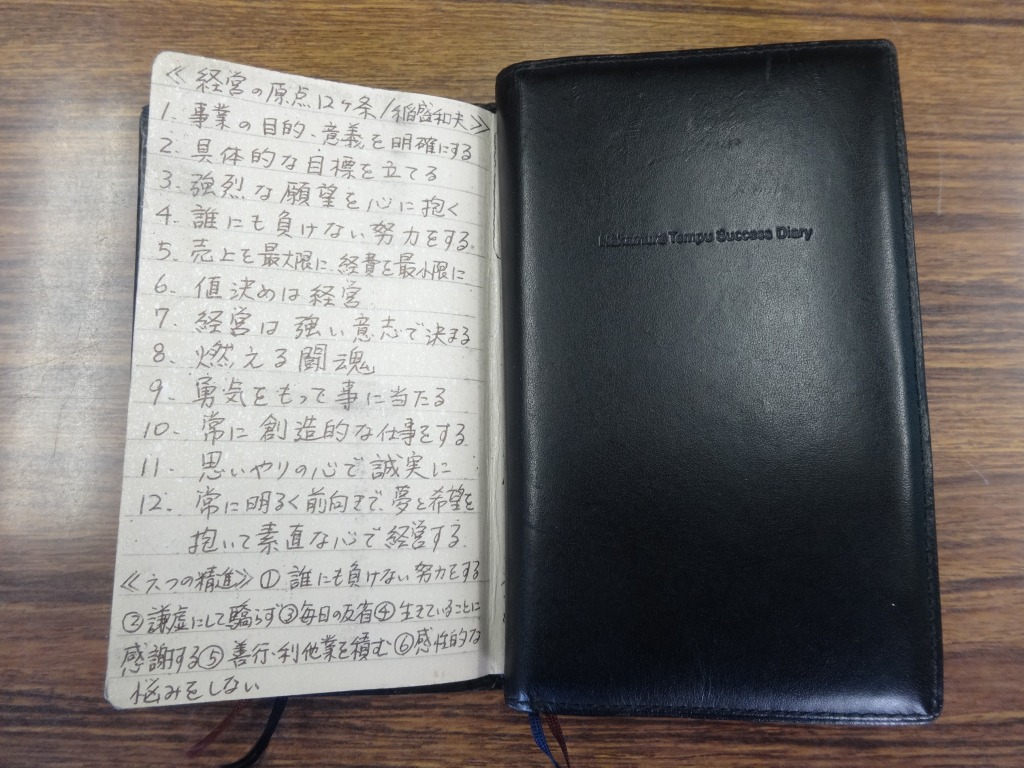 ≪経営の原点12ヶ条/稲盛和夫≫
1. 事業の目的、意義を明確にする
2. 具体的な目標を立てる
3. 強烈な願望を心に抱く
4. 誰にも負けない努力をする
5. 売上を最大限に、経費を最小限に
6. 値決めは経営
7. 経営は強い意志で決まる
8. 燃える闘魂
9. 勇気をもって事に当たる
10. 常に創造的な仕事をする
11. 思いやりの心で誠実に
12. 常に明るく前向きで、夢と希望を
抱いて素直な心で経営する
≪六つの精進≫①誰にも負けない努力をする
②謙虚にして驕らず③毎日の反省④生きていることに
感謝する⑤善行・利他業を積む⑥感性的な
悩みをしない
Nakamura Tempu Success Diary